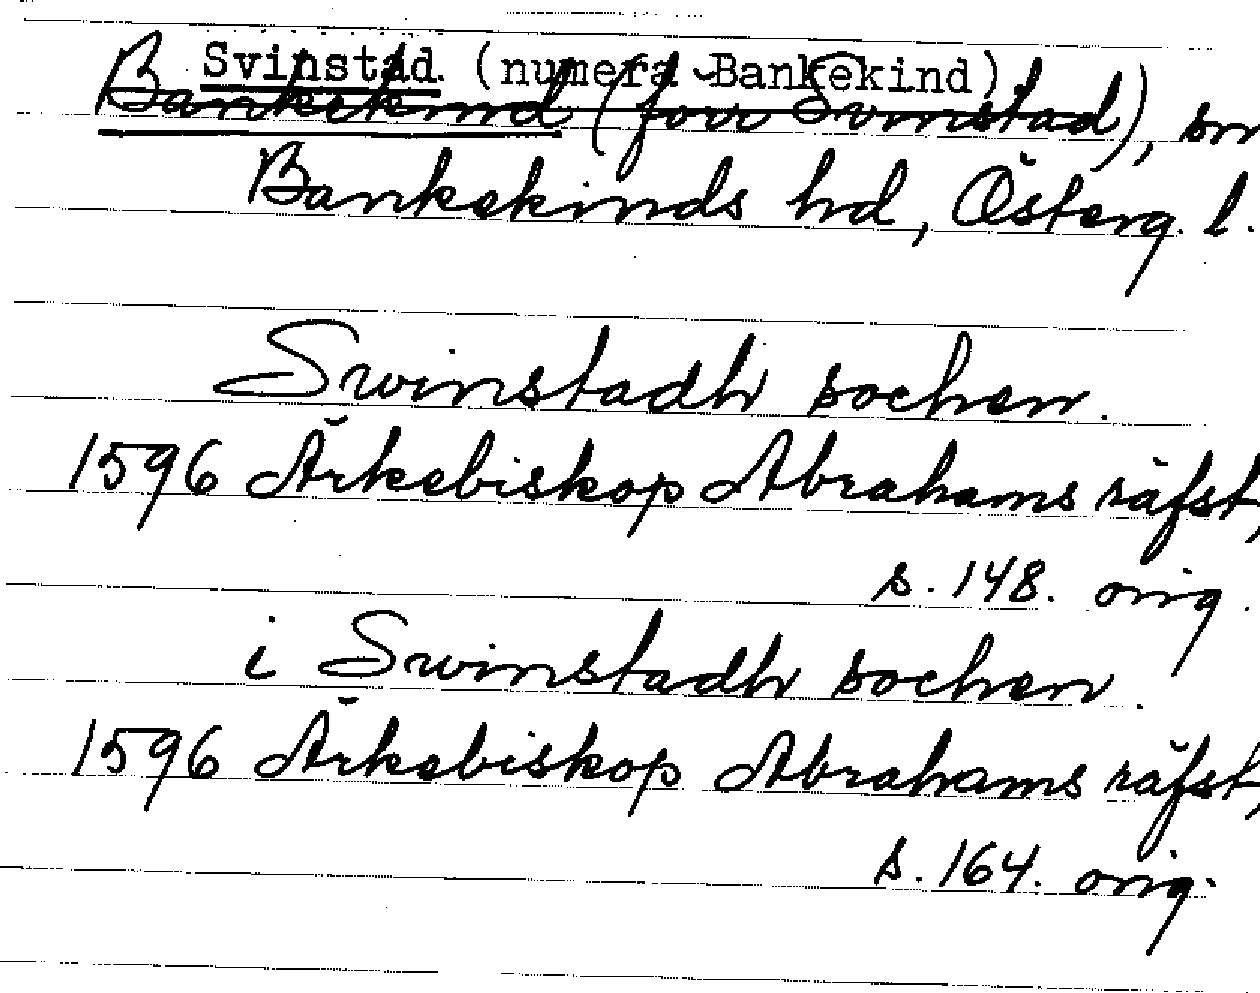 Svinstad (numera Bankekind)
Bankekind (förr Svinstad), sn
Bankekinds hd, Österg. l.
Swinstadh sochen.
1596 Ärkebiskop Abrahams räfst,
s. 148. orig.
i Swinstadh sochen.
1596 Ärkebiskop Abrahams räfst,
s. 164. orig.